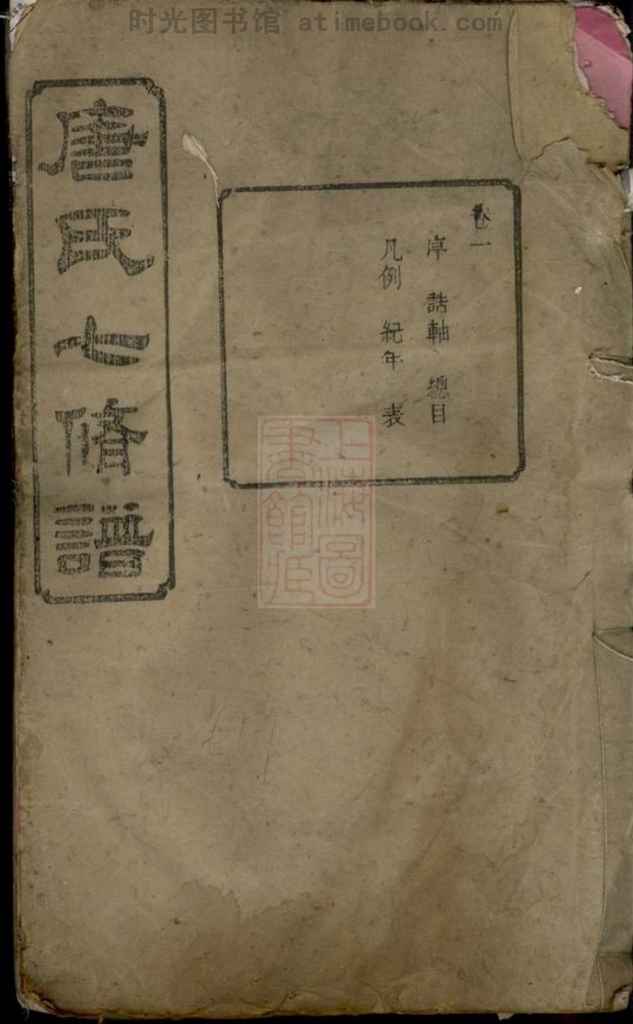 时光图书馆 atimebook.com
唐氏七修譜
卷一
序 誥軸 總目
凡例 紀年 表
上海圖
書館藏